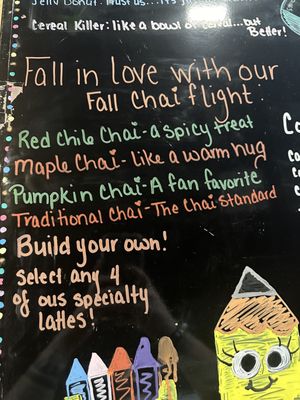 Jelly Donut: Trust us... it's
Cereal Killer: like a bowl of cereal...but
Better!
Fall in love with our
Fall Chai flight:
Red Chile Chai-a spicy treat
Maple Chai-like a warm hug
Pumpkin Chai-A fan favorite
Traditional Chai-The Chai Standard
Build your own!
Select any 4
of our specialty
lattes!